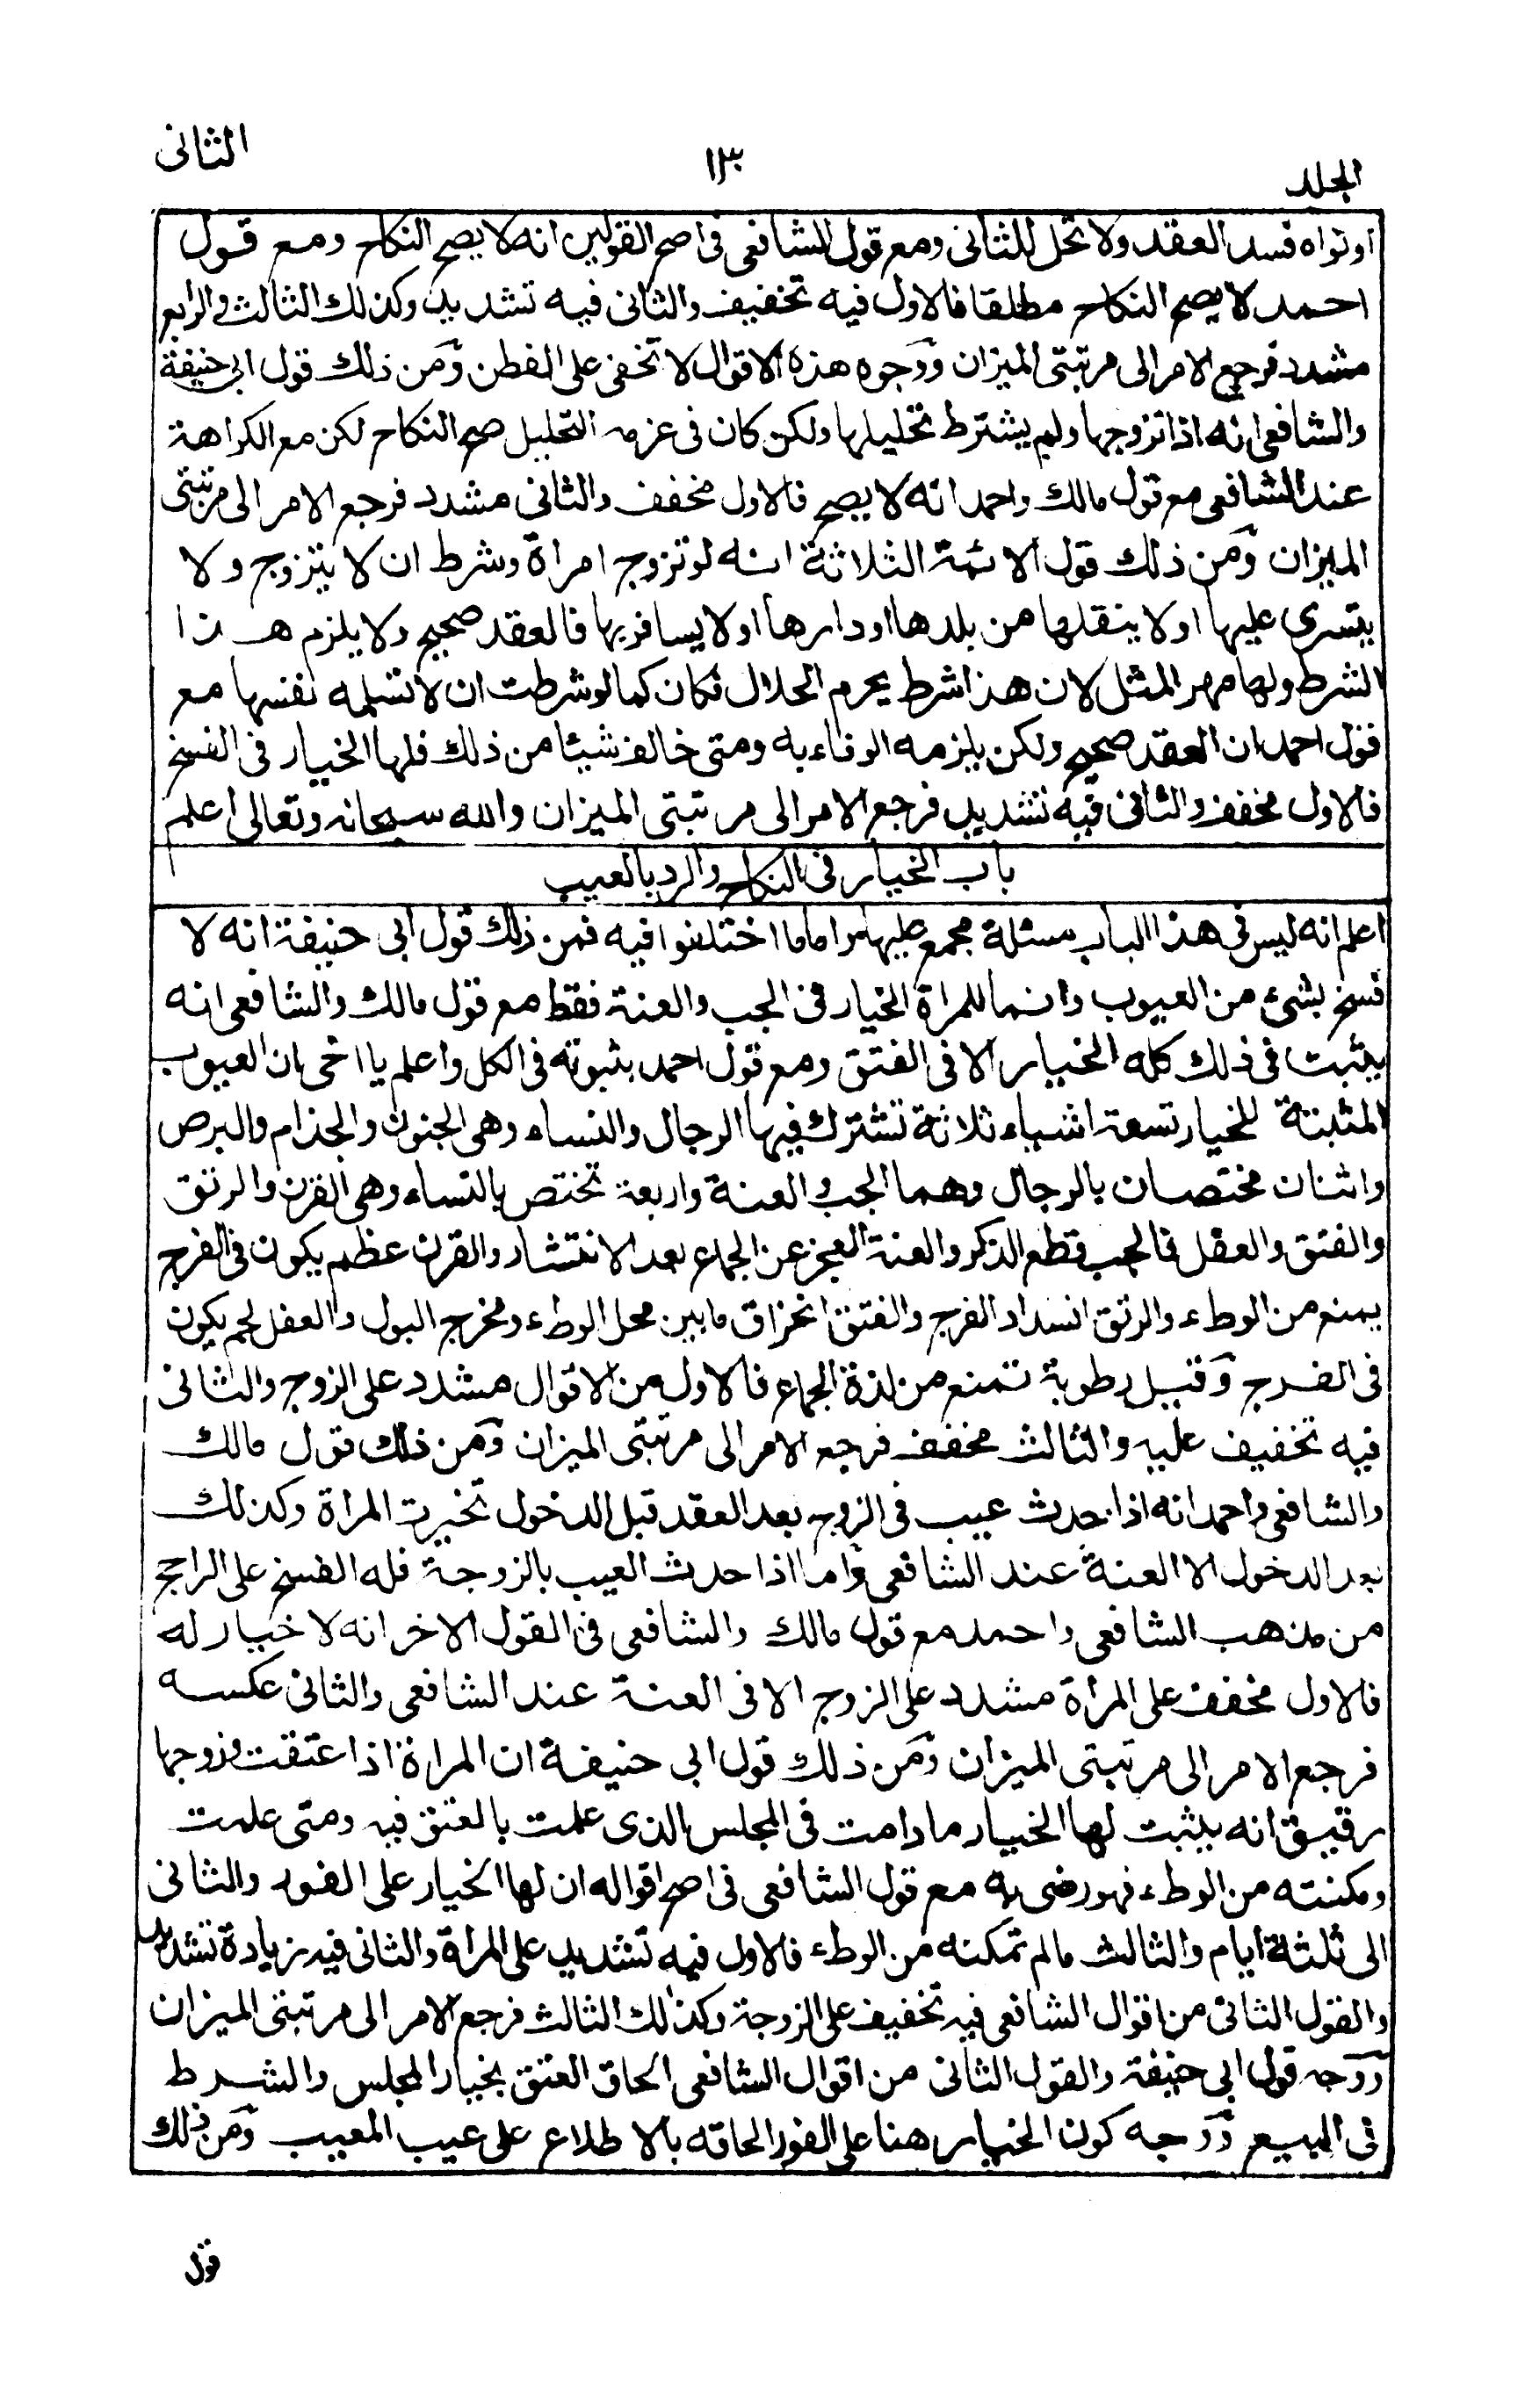 الجلد ١٣٠ الثانى
او نواه فسد العقد ولا تحل للثانى ومع قول الشافعى فى اصح القولين انه لا يصح النكاح ومع قول
احمد لا يصح النكاح مطلقا فالاول فيه تخفيف والثانى فيه تشديد وكذلك الثالث والرابع
مشدد فرجع الامر الى مرتبتى الميزان ووجوه هذه الاقوال لا تخفى على الفطن ومن ذلك قول ابى حنيفة
والشافعى انه اذا تزوجها ولم يشترط تحليلها ولكن كان فى عزمه التحليل صح النكاح لكن مع الكراهة
عند الشافعى مع قول مالك واحمد انه لا يصح فالاول مخفف والثانى مشدد فرجع الامر الى مرتبتى
الميزان ومن ذلك قول الائمة الثلاثة انه لو تزوج امراة وشرط ان لا يتزوج ولا
يتسرى عليها اولا ينقلها من بلدها او دارها اولا يسافر بها فالعقد صحيح ولا يلزم هذا
الشرط ولها مهر المثل لان هذا شرط يحرم الحلال فكان كما لو شرطت ان لا تسلمه نفسها مع
قول احمد ان العقد صحيح ولكن يلزمه الوفاء به ومتى خالف شيئا من ذلك فلها الخيار فى الفسخ
فالاول مخفف والثانى فيه تشديد فرجع الامر الى مرتبتى الميزان والله سبحانه وتعالى اعلم
باب الخيار فى النكاح والرد بالعيب
اعلم انه ليس فى هذا الباب مسئلة مجمع عليها واما ما اختلفوا فيه فمن ذلك قول ابى حنيفة انه لا
فسخ بشئ من العيوب وانما للمراة الخيار فى الجب والعنة فقط مع قول مالك والشافعى انه
يثبت فى ذلك كله الخيار الا فى الفتق ومع قول احمد بثبوته فى الكل واعلم يا اخى ان العيوب
المثبتة للخيار تسعة اشياء ثلاثة تشترك فيها الرجال والنساء وهى الجنون والجذام والبرص
واثنان مختصان بالرجال وهما الجب والعنة واربعة تختص بالنساء وهى القرن والرتق
والفتق والعفل فالجب قطع الذكر والعنة العجز عن الجماع بعد الانتشار والقرن عظم يكون فى الفرج
يمنع من الوطء والرتق انسداد الفرج والفتق انخراق ما بين محل الوطء ومخرج البول والعفل لحم يكون
فى الفرج وقيل رطوبة تمنع من لذة الجماع فالاول من الاقوال مشدد على الزوج والثانى
فيه تخفيف عليه والثالث مخفف فرجع الامر الى مرتبتى الميزان ومن ذلك قول مالك
والشافعى واحمد انه اذا حدث عيب فى الزوج بعد العقد قبل الدخول تخيرت المراة وكذلك
بعد الدخول الا العنة عند الشافعى واما اذا حدث العيب بالزوجة فله الفسخ على الراجح
من مذهب الشافعى واحمد مع قول مالك والشافعى فى القول الاخر انه لا خيار له
فالاول مخفف على المرأة مشدد على الزوج الا فى العنة عند الشافعى والثانى عكسه
فرجع الامر الى مرتبتى الميزان ومن ذلك قول ابى حنيفة ان المراة اذا عتقت وزوجها
رقيق انه يثبت لها الخيار ما دامت فى المجلس الذى علمت بالعتق فيه ومتى علمت
ومكنته من الوطء فهو رضى به مع قول الشافعى فى اصح اقواله ان لها الخيار على الفور والثانى
الى ثلثة ايام والثالث ما لم تمكنه من الوطء فالاول فيه تشديد على المراة والثانى فيه زيادة تشديد
والقول الثانى من اقوال الشافعى فيه تخفيف على الزوجة وكذلك الثالث فرجع الامر الى مرتبتى الميزان
ووجه قول ابى حنيفة والقول الثانى من اقوال الشافعى الحاق العتق بخيار المجلس والشرط
فى البيع ووجه كون الخيار هنا على الفور الحاقه بالاطلاع على عيب المعيب ومن ذلك
قول